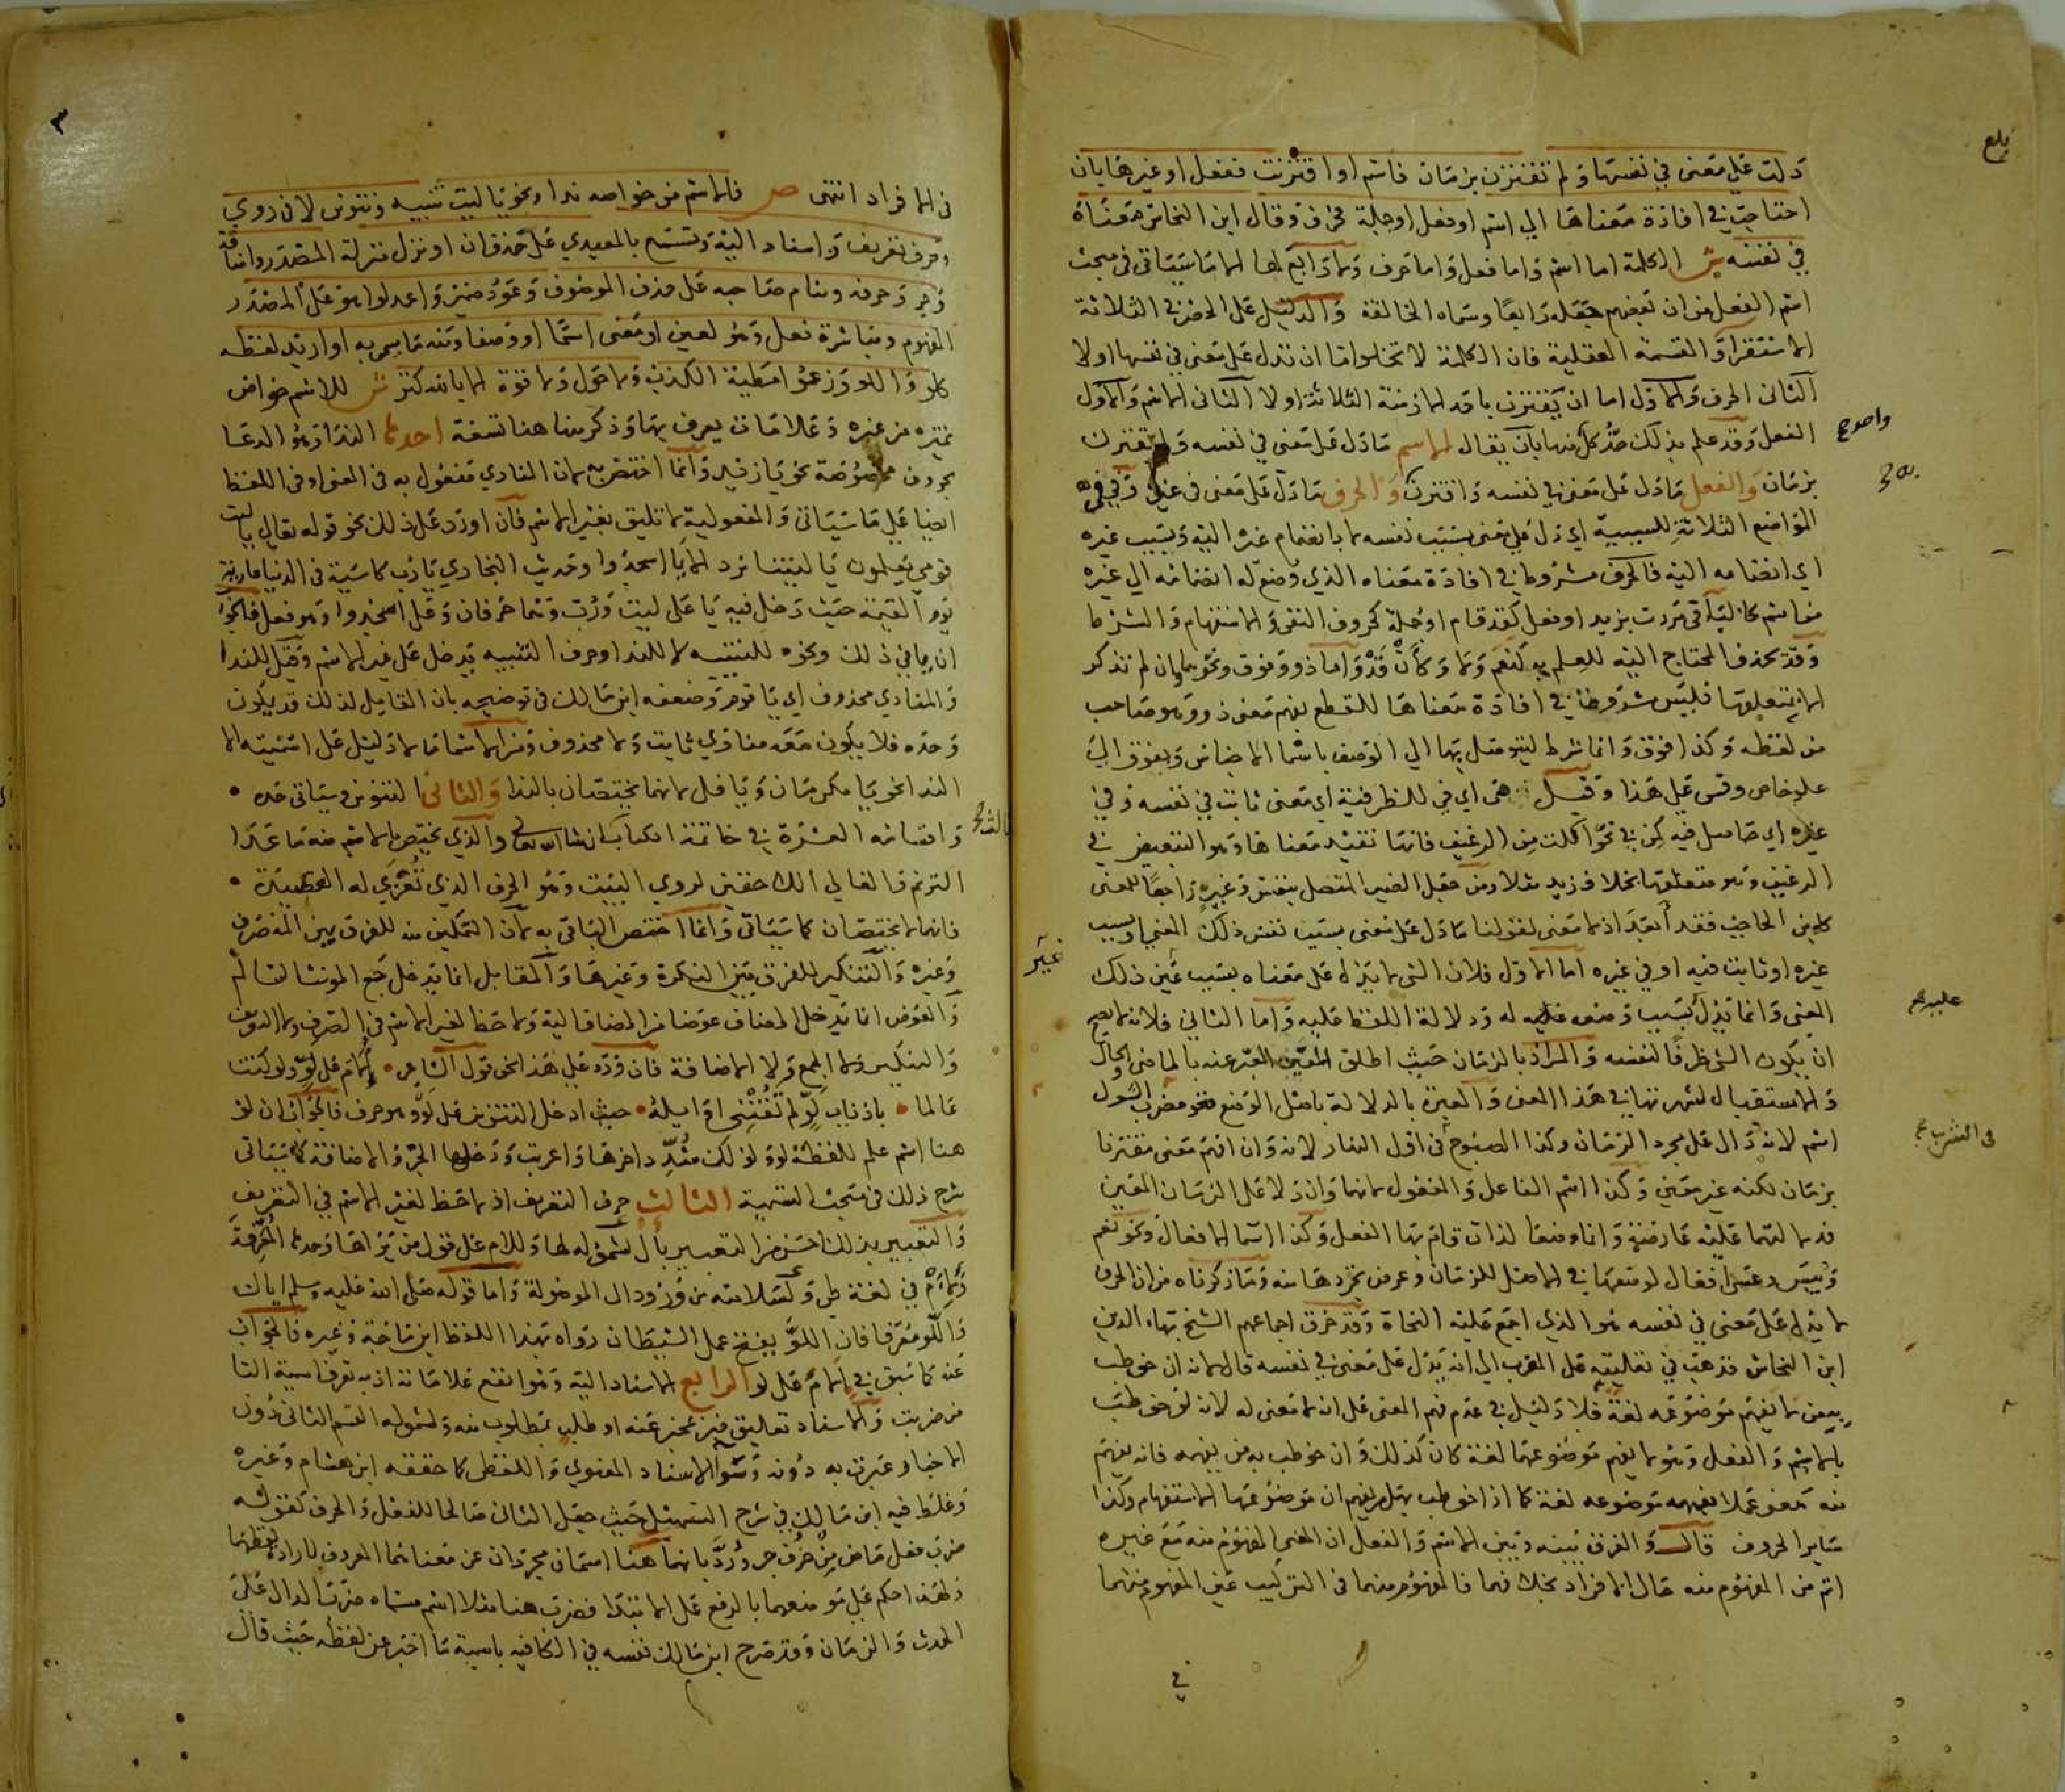 بلغ
دلت على معنى في نفسها ولم تقترن بزمان فاسم او اقترنت ففعل او غيرها بان
احتاجت في افادة معناها الى اسم او فعل او جملة فحرف وقال ابن النحاس معناه
في نفسه ش الكلمة اما اسم واما فعل واما حرف ولا رابع لها الا ما سياتي في مبحث
اسم الفعل من ان بعضهم جعله رابعا وسماه الخالفة والدليل على الحصر في الثلاثة
الاستقرا والقسمة العقلية فان الكلمة لا تخلو اما ان تدل على معنى في نفسها اولا
الثاني الحرف والاول اما ان يقترن باحد الازمنة الثلاثة اولا الثاني الاسم والاول
الفعل وقد علم بذلك حد كل منها بان يقال الاسم ما دل على معنى في نفسه ولم يقترن
واحد صح
بزمان والفعل ما دل على معنى في نفسه واقترن والحرف ما دل على معنى في غيره وفي في
المواضع الثلاثة للسببية اي دل على معنى بسبب نفسه لا بانضمام غيره اليه وبسبب غيره
اي انضمامه اليه فالحرف مشروط في افادة معناه الذي وضع له انضمامه الى غيره
من اسم كالباء في مررت بزيد او فعل كقد قام او جملة كحروف النفي والاستفهام والشرط
وقد يحذف المحتاج اليه للعلم به كنعم ولا وكأن قد واما ذو وفوق ونحوهما وان لم تذكر
الا بمتعلقها فليس مشروطا في افادة معناها للقطع بفهم معنى ذو وهو صاحب
من لفظه وكذا فوق وانما شرط ليتوصل بها الى الوصف باسما الاجناس وبفوق الى
علو خاص وقس على هذا وقيل هي اي في للظرفية اي معنى ثابت في نفسه وفي
غيره اي حاصل فيه كمن في نحو اكلت من الرغيف فانها تفيد معناها وهو التبعيض في
الرغيف وهو متعلقها بخلاف زيد مثلا ومن جعل الضمير المتصل بنفس وغير راجعا للمعنى
كابن الحاجب فقد ابعد اذ لا معنى لقولنا ما دل على معنى بسبب نفس ذلك المعنى او بسبب
غير
غيره او ثابت فيه او في غيره اما الاول فلان الشي لا يدل على معناه بسبب عين ذلك
المعنى وانما يدل بسبب وضعه له ودلالة اللفظ عليه واما الثاني فلانه لا يصح
عليه صح
ان يكون الشي ظرفا لنفسه والمراد بالزمان حيث اطلق المعين المعبر عنه بالماضي والحال
والاستقبال لشهرتها في هذا المعنى والمعين بالدلالة باصل الوضع فنحو مضرب الشول
اسم لانه دال على مجرد الزمان وكذا الصبوح في اول النهار لانه وان افهم معنى مقترنا
في الشرب صح
بزمان لكنه غير معين وكذا اسم الفاعل والمفعول لانهما وان دلا على الزمان المعين
فدلالتهما عليه عارضة وانما وضعا لذات قام بها الفعل وكذا اسما الافعال ونحو نعم
وبيس وعسى افعال لوضعها في الاصل للزمان وعرض تجردها منه وما ذكرناه من ان الحرف
لا يدل على معنى في نفسه هو الذي اجمع عليه النحاة وقد خرق اجماعهم الشيخ بهاء الدين
ابن النحاس فذهب في تعليقه على المقرب الى انه يدل على معنى في نفسه قال لانه ان خوطب
به من لا يفهم موضوعه لغة فلا دليل في عدم فهم المعنى على ان لا معنى له لانه لو خوطب
بالاسم والفعل وهو لا يفهم موضوعهما لغة كان كذلك وان خوطب به من يفهمه فانه يفهم
منه معنى عملا بفهمه موضوعه لغة كما اذا خوطب بهل من يفهم ان موضوعها الاستفهام وكذا
ساير الحروف قال والفرق بينه وبين الاسم والفعل ان المعنى المفهوم منه مع غيره
اتم من المفهوم منه حال الافراد بخلافهما فالمفهوم منهما في التركيب عين المفهوم منهما
في
٣
في الافراد انتهى ص فالاسم من خواصه ندا ونحو يا ليت تنبيه وتنوين لا في روي
وحرف تعريف واسناد اليه وتسمع بالمعيدي على حذف ان او نزل منزلة المصدر واضافة
وجر وحرفه وبنام صاحبه على حذف الموصوف وعود ضمير واعدلوا هو على المصدر
المفهوم ومباشرة فعل وهو لعين او معنى اسما او وصفا ومنه ما سمي به او اريد لفظه
كلو واللو وزعموا مطية الكذب ولا حول ولا قوة الا بالله كنز ش للاسم خواص
تميزه من غيره وعلامات يعرف بها وذكر منها هنا تسعة احدها الندا وهو الدعا
بحروف مخصوصة نحو يا زيد وانما اختص به لان المنادي مفعول به في المعنى او في اللفظ
ايضا على ما سياتي والمفعولية لا تليق بغير الاسم فان اورد على ذلك نحو قوله تعالى يا ليت
قومي يعلمون يا ليتنا نرد الا يا اسجدوا وحديث البخاري يا رب كاسية في الدنيا عارية
يوم القيمة حيث دخل فيه يا على ليت ورب وهما حرفان وعلى اسجدوا وهو فعل فالجواب
ان يا في ذلك ونحوه للتنبيه لا للندا وحرف التنبيه يدخل على غير الاسم وقيل للندا
والمنادي محذوف اي يا قوم وضعفه ابن مالك في توضيحه بان القايل لذلك قد يكون
وحده فلا يكون معه منادي ثابت ولا محذوف ومن الاسما ما لا دليل على اسميته الا
الندا نحو يا مكرمان ويا فل لانهما يختصان بالندا والثاني التنوين وسياتي حده
واقسامه العشرة في خاتمة الكتاب ان شا الله تعالى والذي يختص بالاسم منه ما عدا
الترنم والغالي اللاحقين لروي البيت وهو الحرف الذي تعزي له القصيدة
فانهما لا يختصان كما سياتي وانما اختص الباقي به لان التمكين منه للفرق بين المنصرف
وغيره والتنكير للفرق بين النكرة وغيرها والمقابل انما يدخل جمع المونث السالم
والعوض انما يدخل المضاف عوضا من المضاف اليه ولا حظ لغير الاسم في الصرف ولا التعريف
والتنكير ولا الجمع ولا الاضافة فان ورد على هذا نحو قول الشاعر الام على لو ولو كنت
عالما باذناب لو لم تفتني اوايله حيث ادخل التنوين على لو وهو حرف فالجواب ان لو
هنا اسم علم للفظة لو ولذلك شدد اخرها واعربت ودخلها الجر والاضافة كما سياتي
شرح ذلك في مبحث التسمية الثالث حرف التعريف اذ لا حظ لغير الاسم في التعريف
والتعبير بذلك احسن من التعبير بال لشموله لها وللام على قول من يراها وحدها المعرفة
ولام في لغة طي ولسلامته من ورود ال الموصولة واما قوله صلى الله عليه وسلم اياك
واللو معرفا فان اللو يفتح عمل الشيطان رواه بهذا اللفظ ابن ماجة وغيره فالجواب
عنه كما سبق في الام على لو الرابع الاسناد اليه وهو انفع علاماته اذ به تعرف اسمية التا
من ضربت والاسناد تعليق خبر بمخبر عنه او طلب بمطلوب منه ولشموله القسم الثاني دون
الاخبار عبرت به دونه وسوا الاسناد المعنوي واللفظي كما حققه ابن هشام وغيره
وغلط فيه ابن مالك في شرح التسهيل حيث جعل الثاني صالحا للفعل والحرف كقولك
ضرب فعل ماض من حرف جر ورد بانهما هنا اسمان مجردان عن معناهما المعروف لارادة لفظهما
ولهذا حكم على موضعهما بالرفع على الابتدا فضرب هنا مثلا اسم مسماه ضرب الدال على
الحدث والزمان وقد صرح ابن مالك نفسه في الكافيه باسمية ما اخبر عن لفظه حيث قال